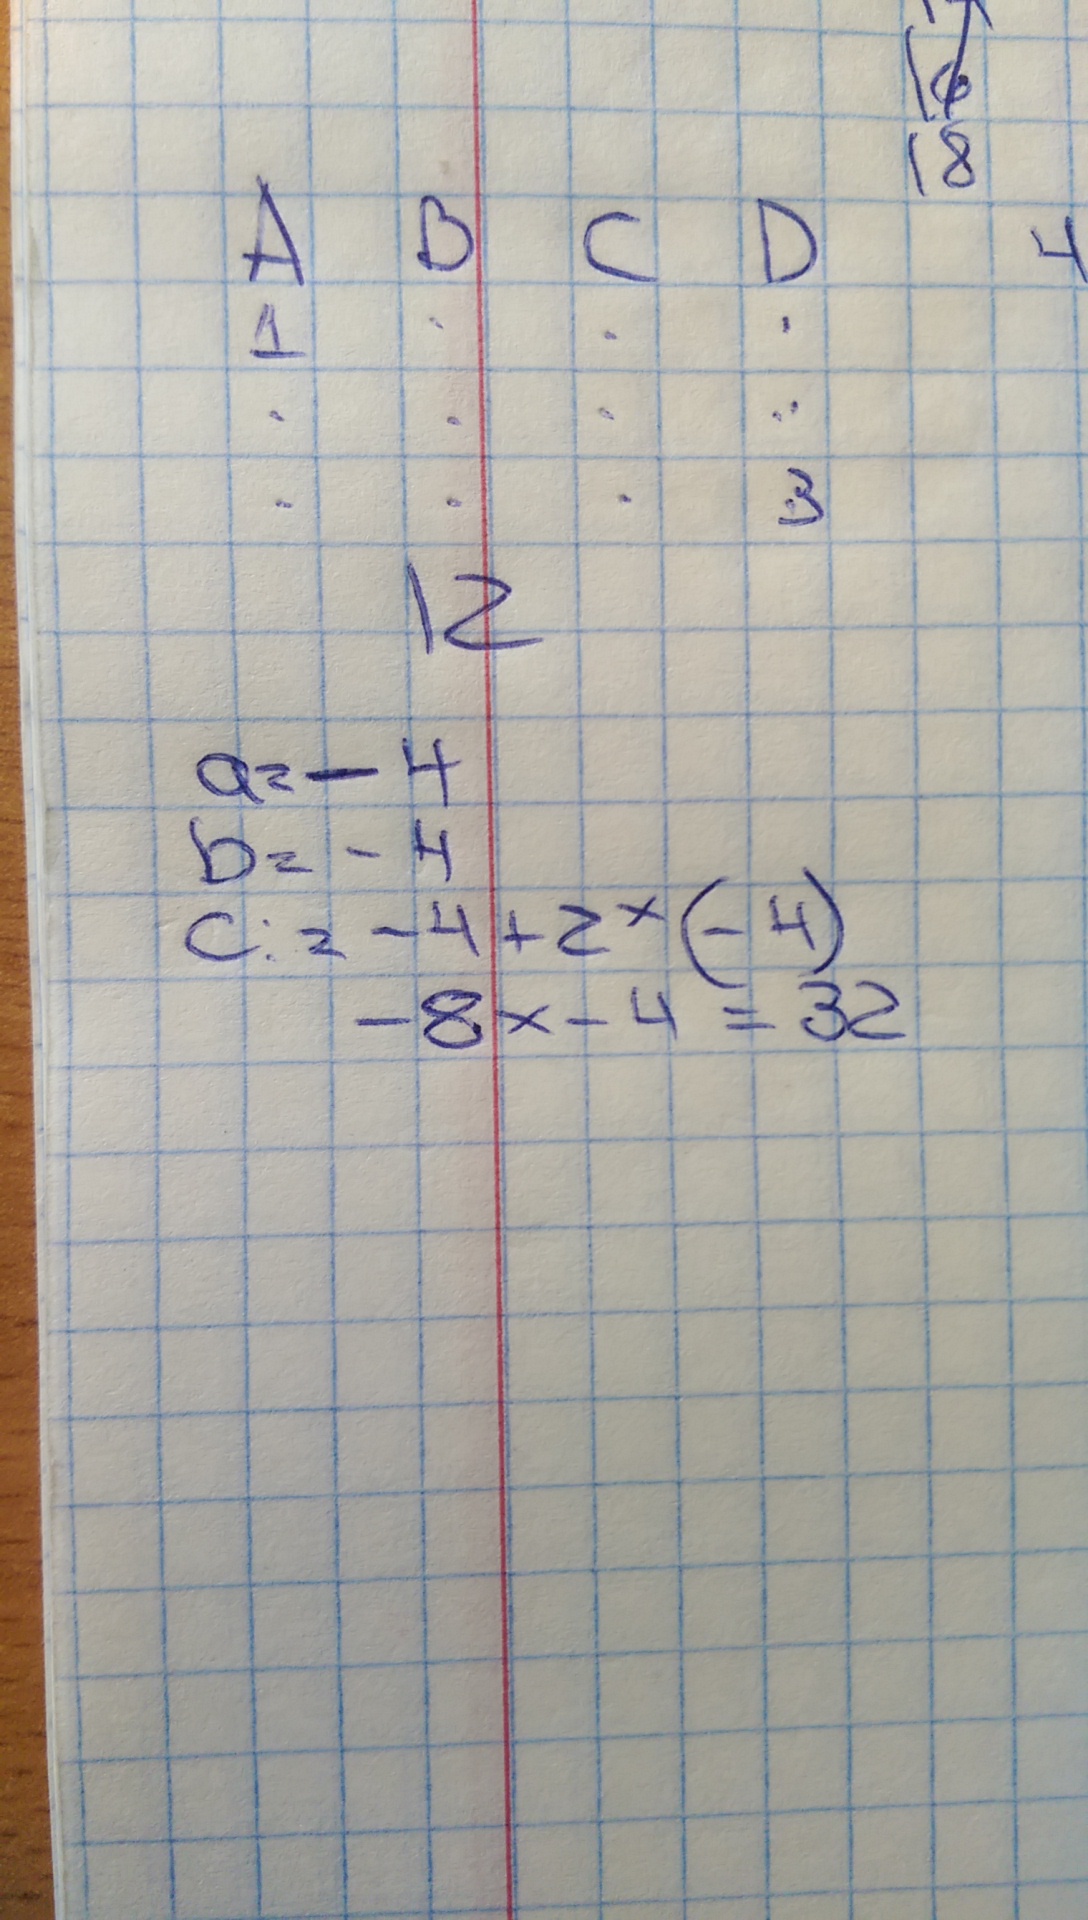 18
A B C D 4
1 . . .
. . . .
. . . 3
12
a=-4
b=-4
c:=-4+2×(-4)
-8×-4=32